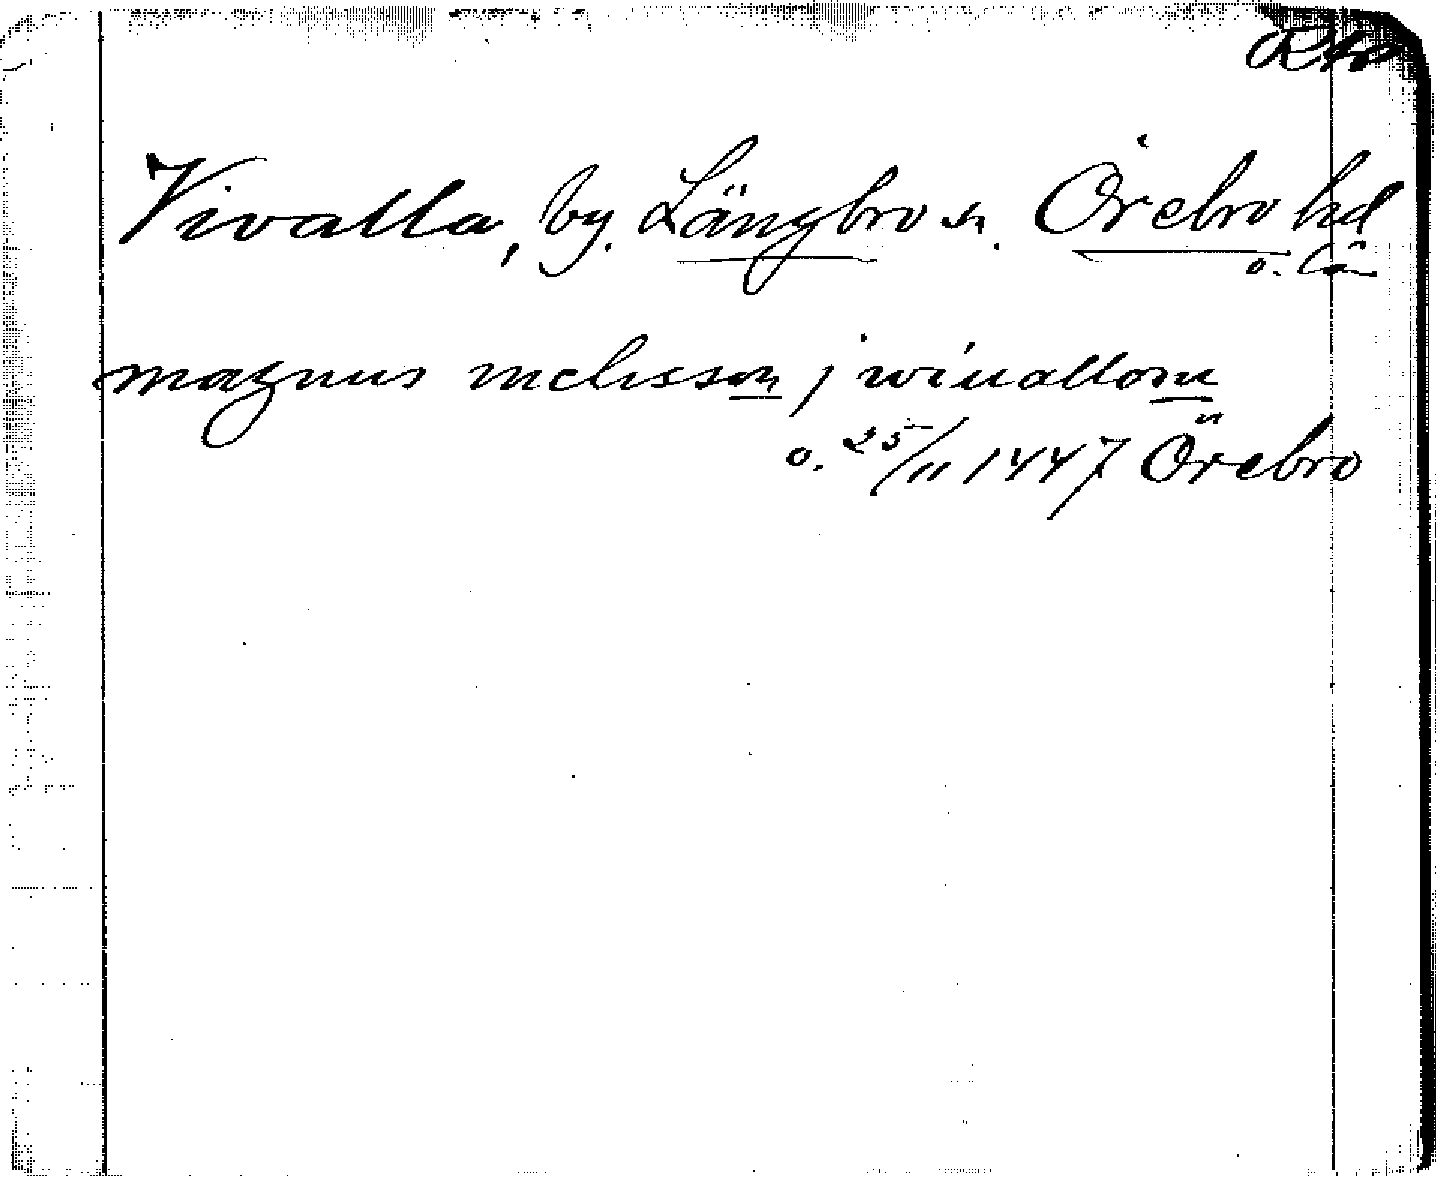 Vivalla, by. Längbro sn. Örebro hd
o. län
magnus nielsson j wiuallom
o. 25/11 1447 Örebro